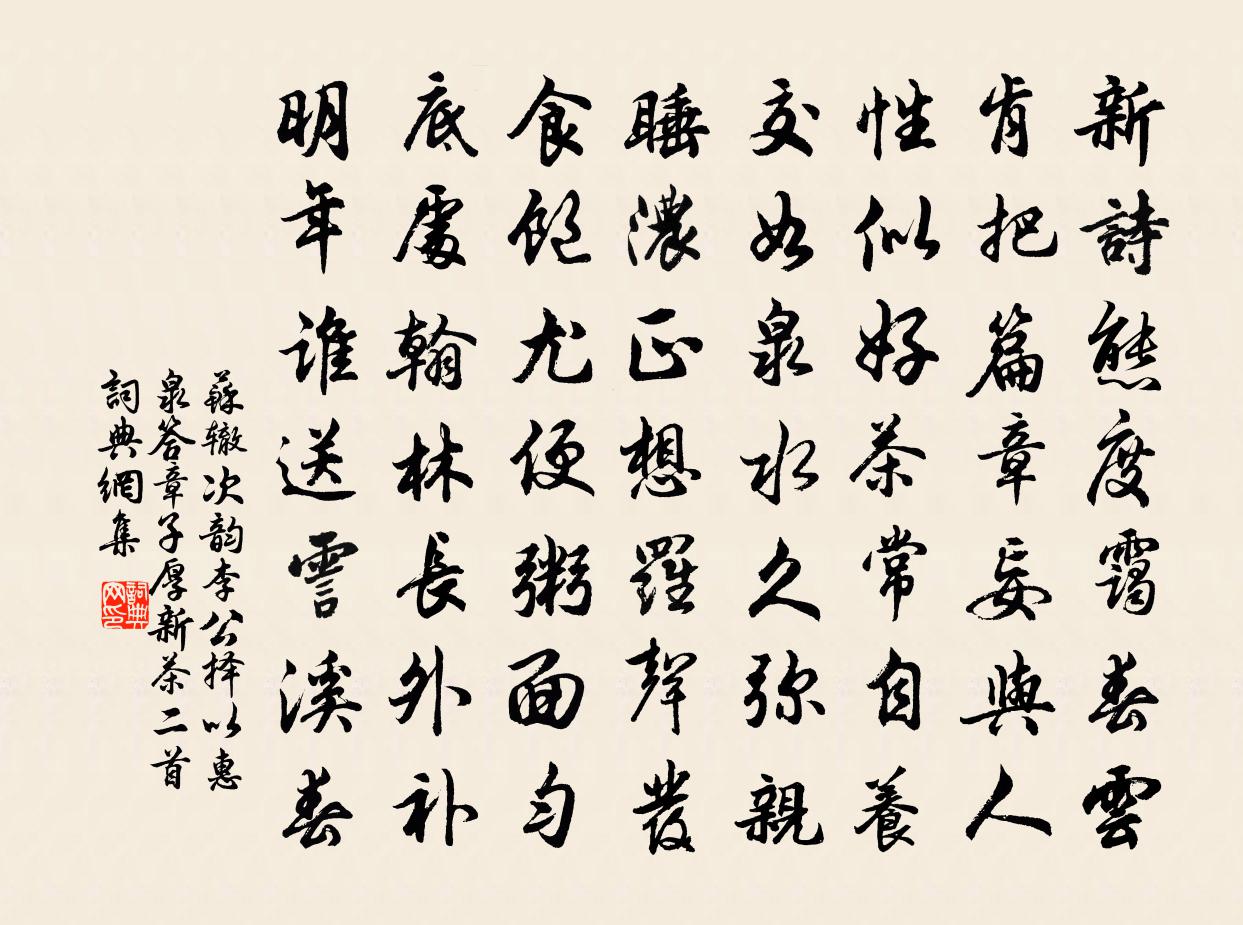 新詩態度靄春雲
肯把篇章妄與人
性似好茶常自養
交如泉水久弥親
睡濃正想羅聲發
食飽尤便粥面勻
底處翰林長外补
明年誰送霅溪春
蘇辙次韵李公择以惠
泉答章子厚新茶二首
詞典網集
詞典
网印